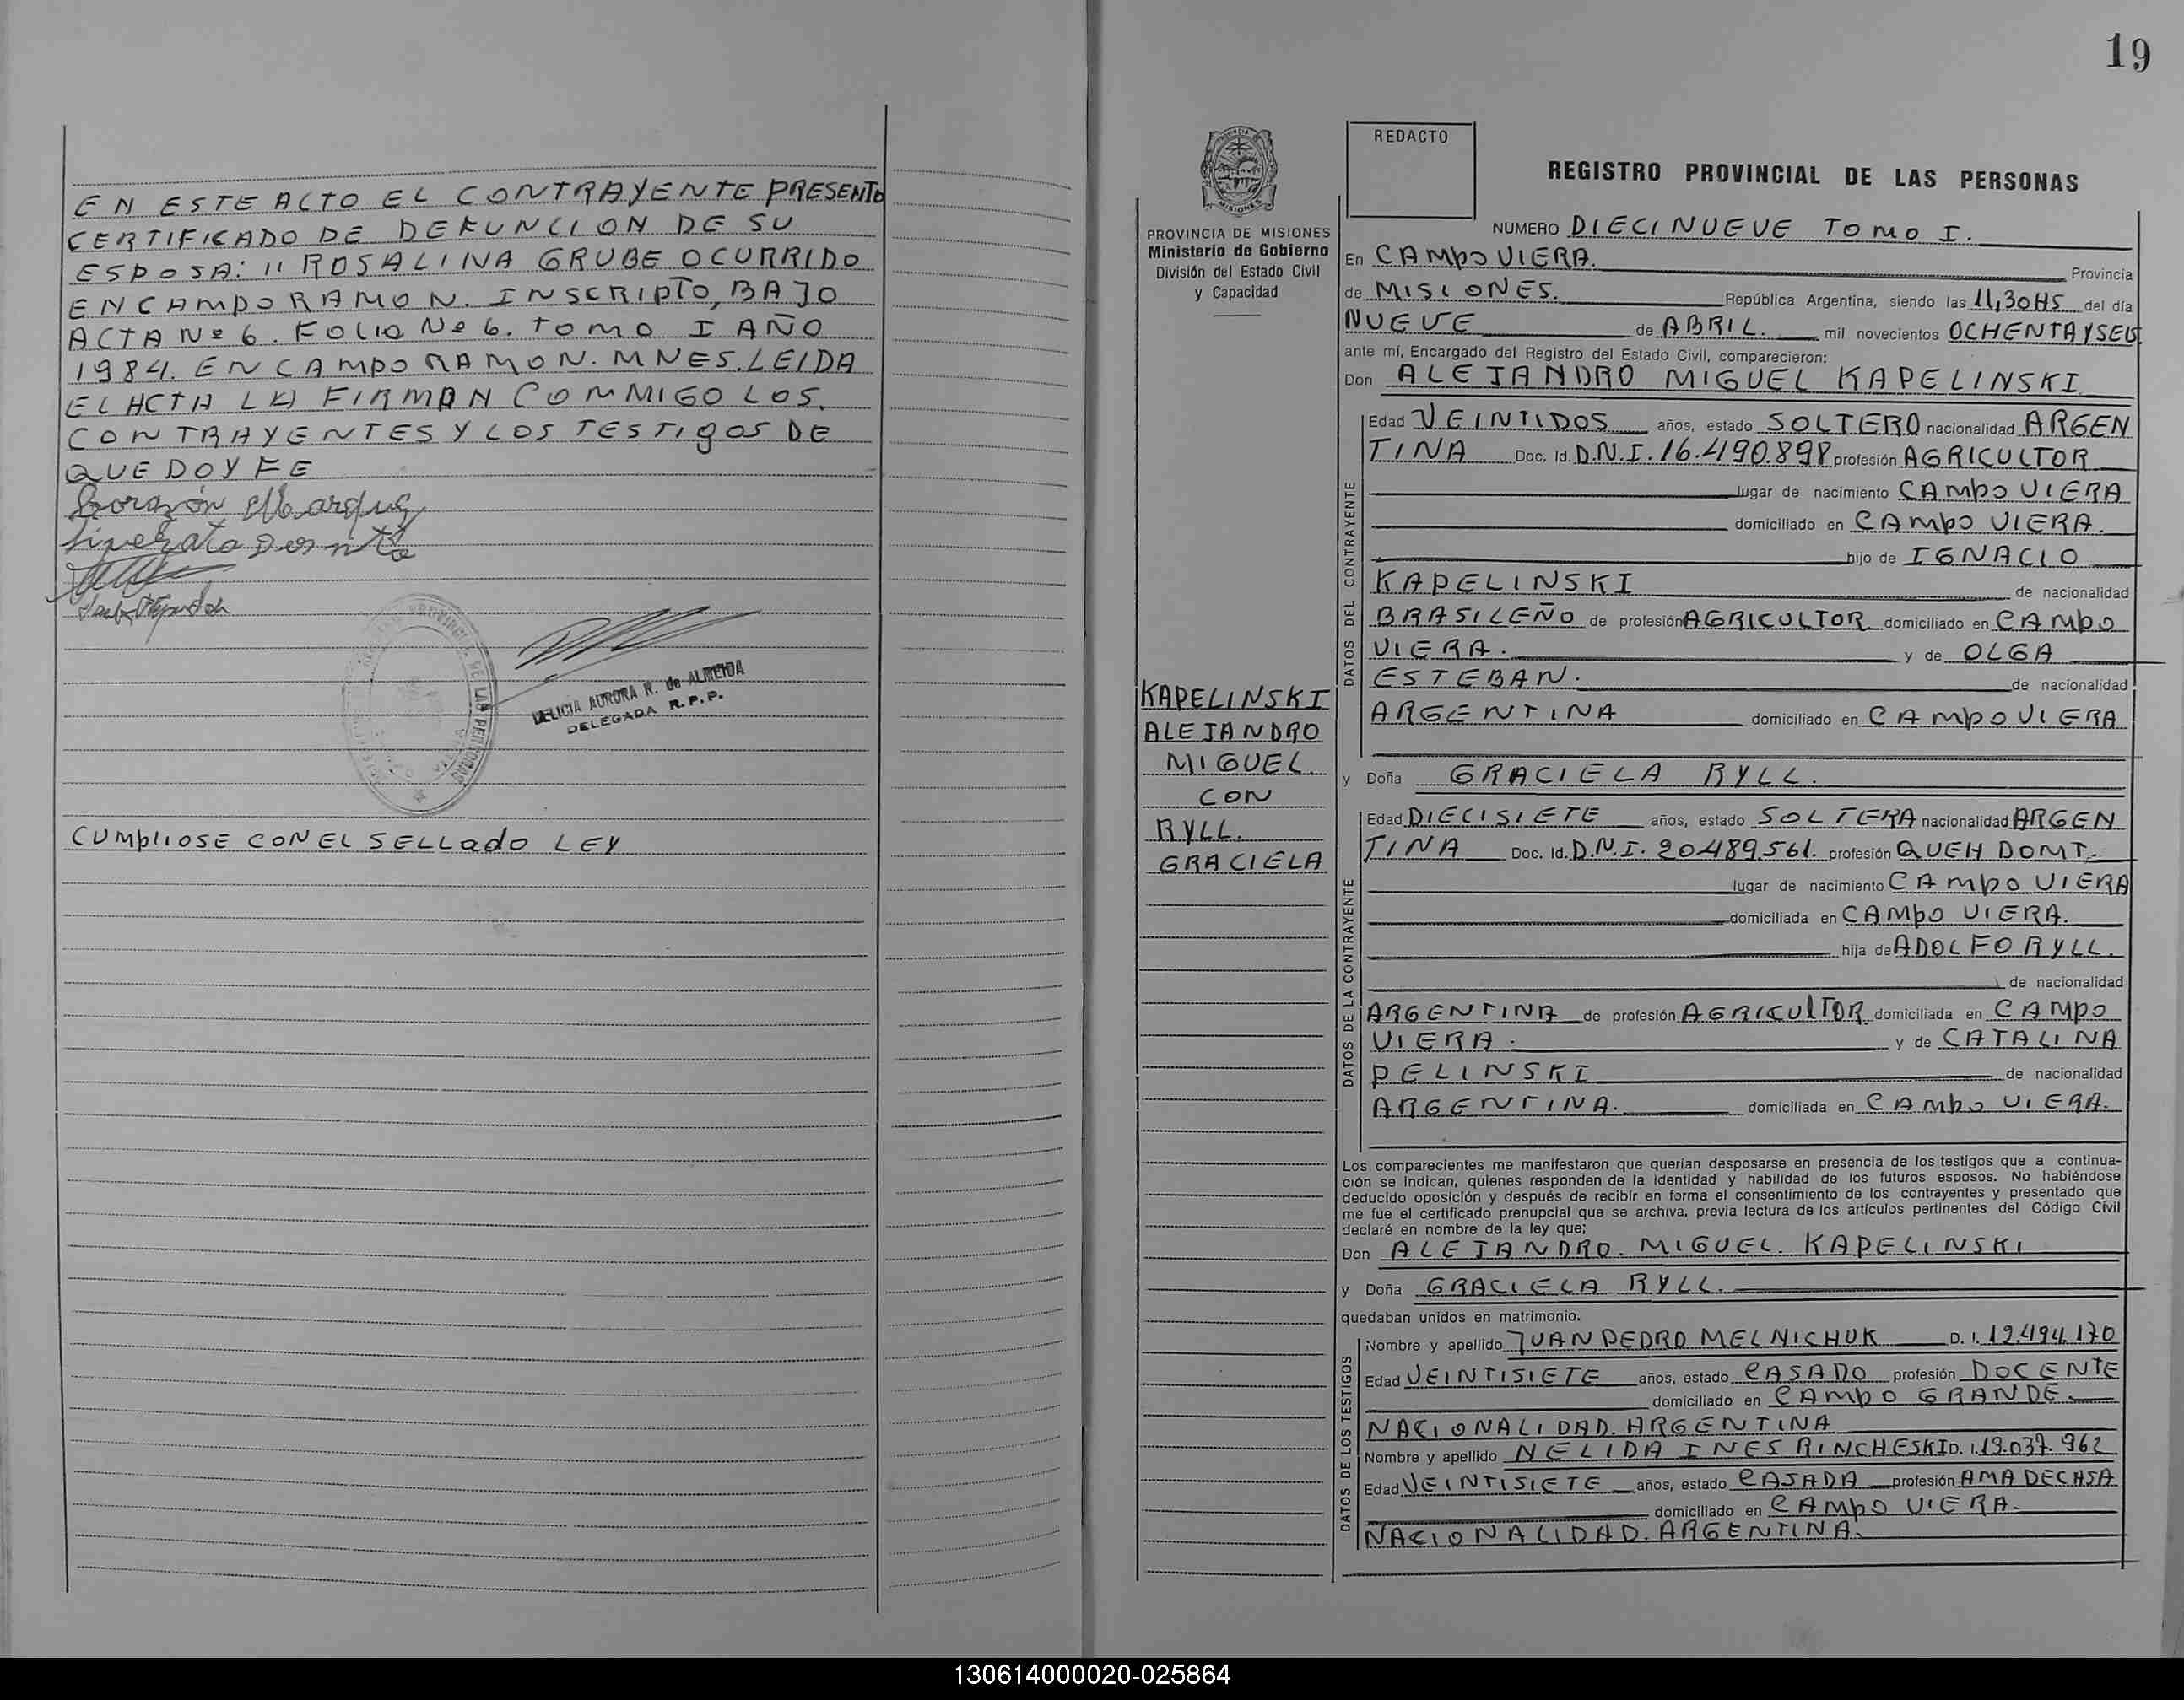 EN ESTE ACTO EL CONTRAYENTE PRESENTO
CERTIFICADO DE DEFUNCION DE SU
ESPOSA: " ROSALINA GRUBE OCURRIDO
EN CAMPO RAMON. INSCRIPTO, BAJO
ACTA Nº 6. FOLIO Nº 6. TOMO I AÑO
1984. EN CAMPO RAMON. MNES. LEIDA
EL ACTA LA FIRMAN COMMIGO LOS.
CONTRAYENTES Y LOS TESTIGOS DE
QUE DOY FE
DELICIA AURORA R. de ALMEIDA
DELEGADA R.P.P.
CUMPLIOSE CON EL SELLADO LEY
19
PROVINCIA DE MISIONES
Ministerio de Gobierno
División del Estado Civil
y Capacidad
KAPELINSKI
ALEJANDRO
MIGUEL
CON
RYLL.
GRACIELA
REDACTO
REGISTRO PROVINCIAL DE LAS PERSONAS
NUMERO DIECINUEVE TOMO I.
En CAMPO VIERA. Provincia
de MISIONES. República Argentina, siendo las 11,30 HS del día
NUEVE de ABRIL. mil novecientos OCHENTA Y SEIS
ante mí, Encargado del Registro del Estado Civil, comparecieron:
Don ALEJANDRO MIGUEL KAPELINSKI
DATOS DEL CONTRAYENTE
Edad VEINTIDOS años, estado SOLTERO nacionalidad ARGEN
TINA Doc. Id. D.N.I. 16.490.898 profesión AGRICULTOR
lugar de nacimiento CAMPO VIERA
domiciliado en CAMPO VIERA.
hijo de IGNACIO
KAPELINSKI de nacionalidad
BRASILEÑO de profesión AGRICULTOR domiciliado en CAMPO
VIERA. y de OLGA
ESTEBAN. de nacionalidad
ARGENTINA domiciliado en CAMPO VIERA
y Doña GRACIELA RYLL.
DATOS DE LA CONTRAYENTE
Edad DIECISIETE años, estado SOLTERA nacionalidad ARGEN
TINA Doc. Id. D.N.I. 20.489.561. profesión QUEH DOMT.
lugar de nacimiento CAMPO VIERA
domiciliada en CAMPO VIERA.
hija de ADOLFO RYLL.
de nacionalidad
ARGENTINA de profesión AGRICULTOR domiciliada en CAMPO
VIERA. y de CATALINA
PELINSKI de nacionalidad
ARGENTINA. domiciliada en CAMPO VIERA.
Los comparecientes me manifestaron que querían desposarse en presencia de los testigos que a continua-
ción se indican, quienes responden de la identidad y habilidad de los futuros esposos. No habiéndose
deducido oposición y después de recibir en forma el consentimiento de los contrayentes y presentado que
me fue el certificado prenupcial que se archiva, previa lectura de los artículos pertinentes del Código Civil
declaré en nombre de la ley que:
Don ALEJANDRO. MIGUEL. KAPELINSKI
y Doña GRACIELA RYLL.
quedaban unidos en matrimonio.
DATOS DE LOS TESTIGOS
Nombre y apellido JUAN PEDRO MELNICHUK D. I. 12.494.170
Edad VEINTISIETE años, estado CASADO profesión DOCENTE
domiciliado en CAMPO GRANDE.
NACIONALIDAD. ARGENTINA
Nombre y apellido NELIDA INES RINCHESKI D. I. 13.037.962
Edad VEINTISIETE años, estado CASADA profesión AMA DE CASA
domiciliado en CAMPO VIERA.
NACIONALIDAD. ARGENTINA.
130614000020-025864